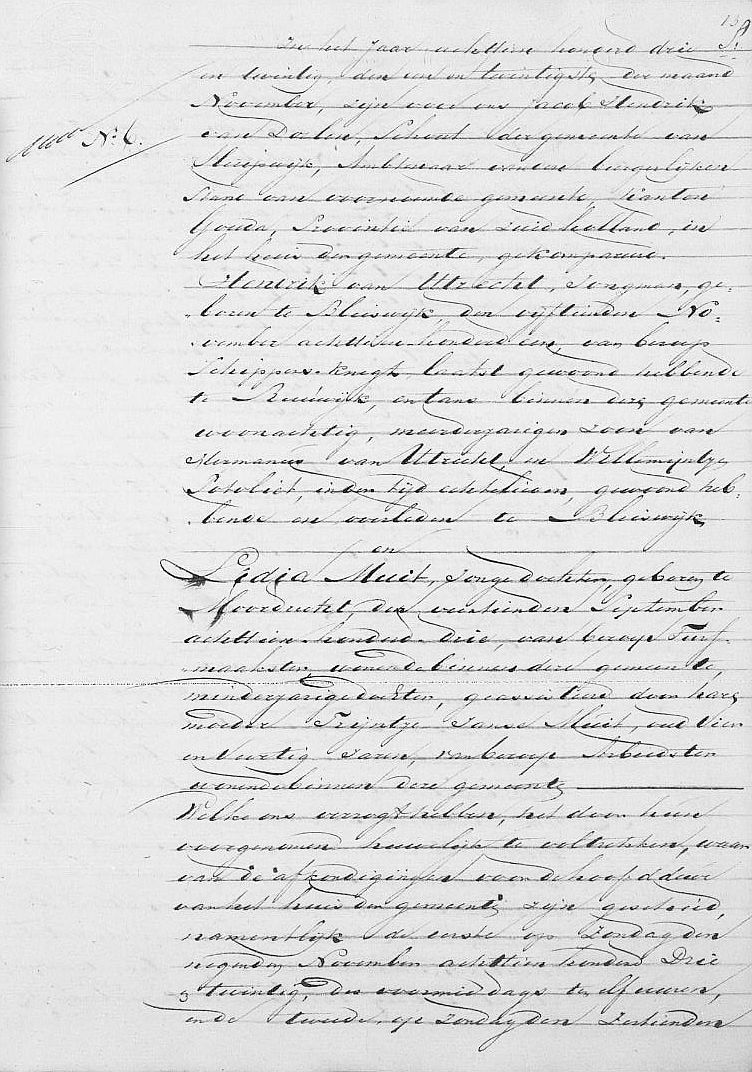 158
In het Jaar achttien honderd drie
en twintig, den een en twintigste der maand
November, zijn voor ons Jacob Hendrik
van Dorlen, Schout der gemeente van
Sluipwijk, Ambtenaar van den burgerlijken
Stand van voornoemde gemeente, Kanton
Gouda, Provintie van Zuid holland, in
het huis der gemeente, gekompareerd.
No 6.
Hendrik van Uttrecht, Jongman, ge-
boren te Bleiswijk, den vijftienden No-
vember achttien honderd een, van beroep
Schippers-knegt, laatst gewoond hebbende
te Reeuwijk, en tans binnen deze gemeente
woonachtig, meerderjarigen zoon van
Hermanus van Uttrecht, en Willemijntje
in der tijd echtelieden, gewoond heb-
bende en overleden te Bleiswijk
en
Lidia Muit, Jonge dochter, geboren te
Moordrecht, den veertienden September
achttien-honderd-drie, van beroep Turf-
maakster, wonende binnen deze gemeente,
minderjarige dochter, geassisteerd door hare
moeder Trijntje Janse Muit, oud Vier
en Veertig Jaren, van beroep Arbeidster
wonende binnen deze gemeente
Welke ons verzogt hebben, het door hun
voorgenomen huwelijk te voltrekken, waar
van de afkondigingen voor de hoofddeur
van het huis der gemeente zijn geschied,
namentlijk de eerste op Zondag den
negenden November achttien honderd Drie
en twintig, des voormiddags te elf uuren,
en de tweede, op Zondag den Zestienden